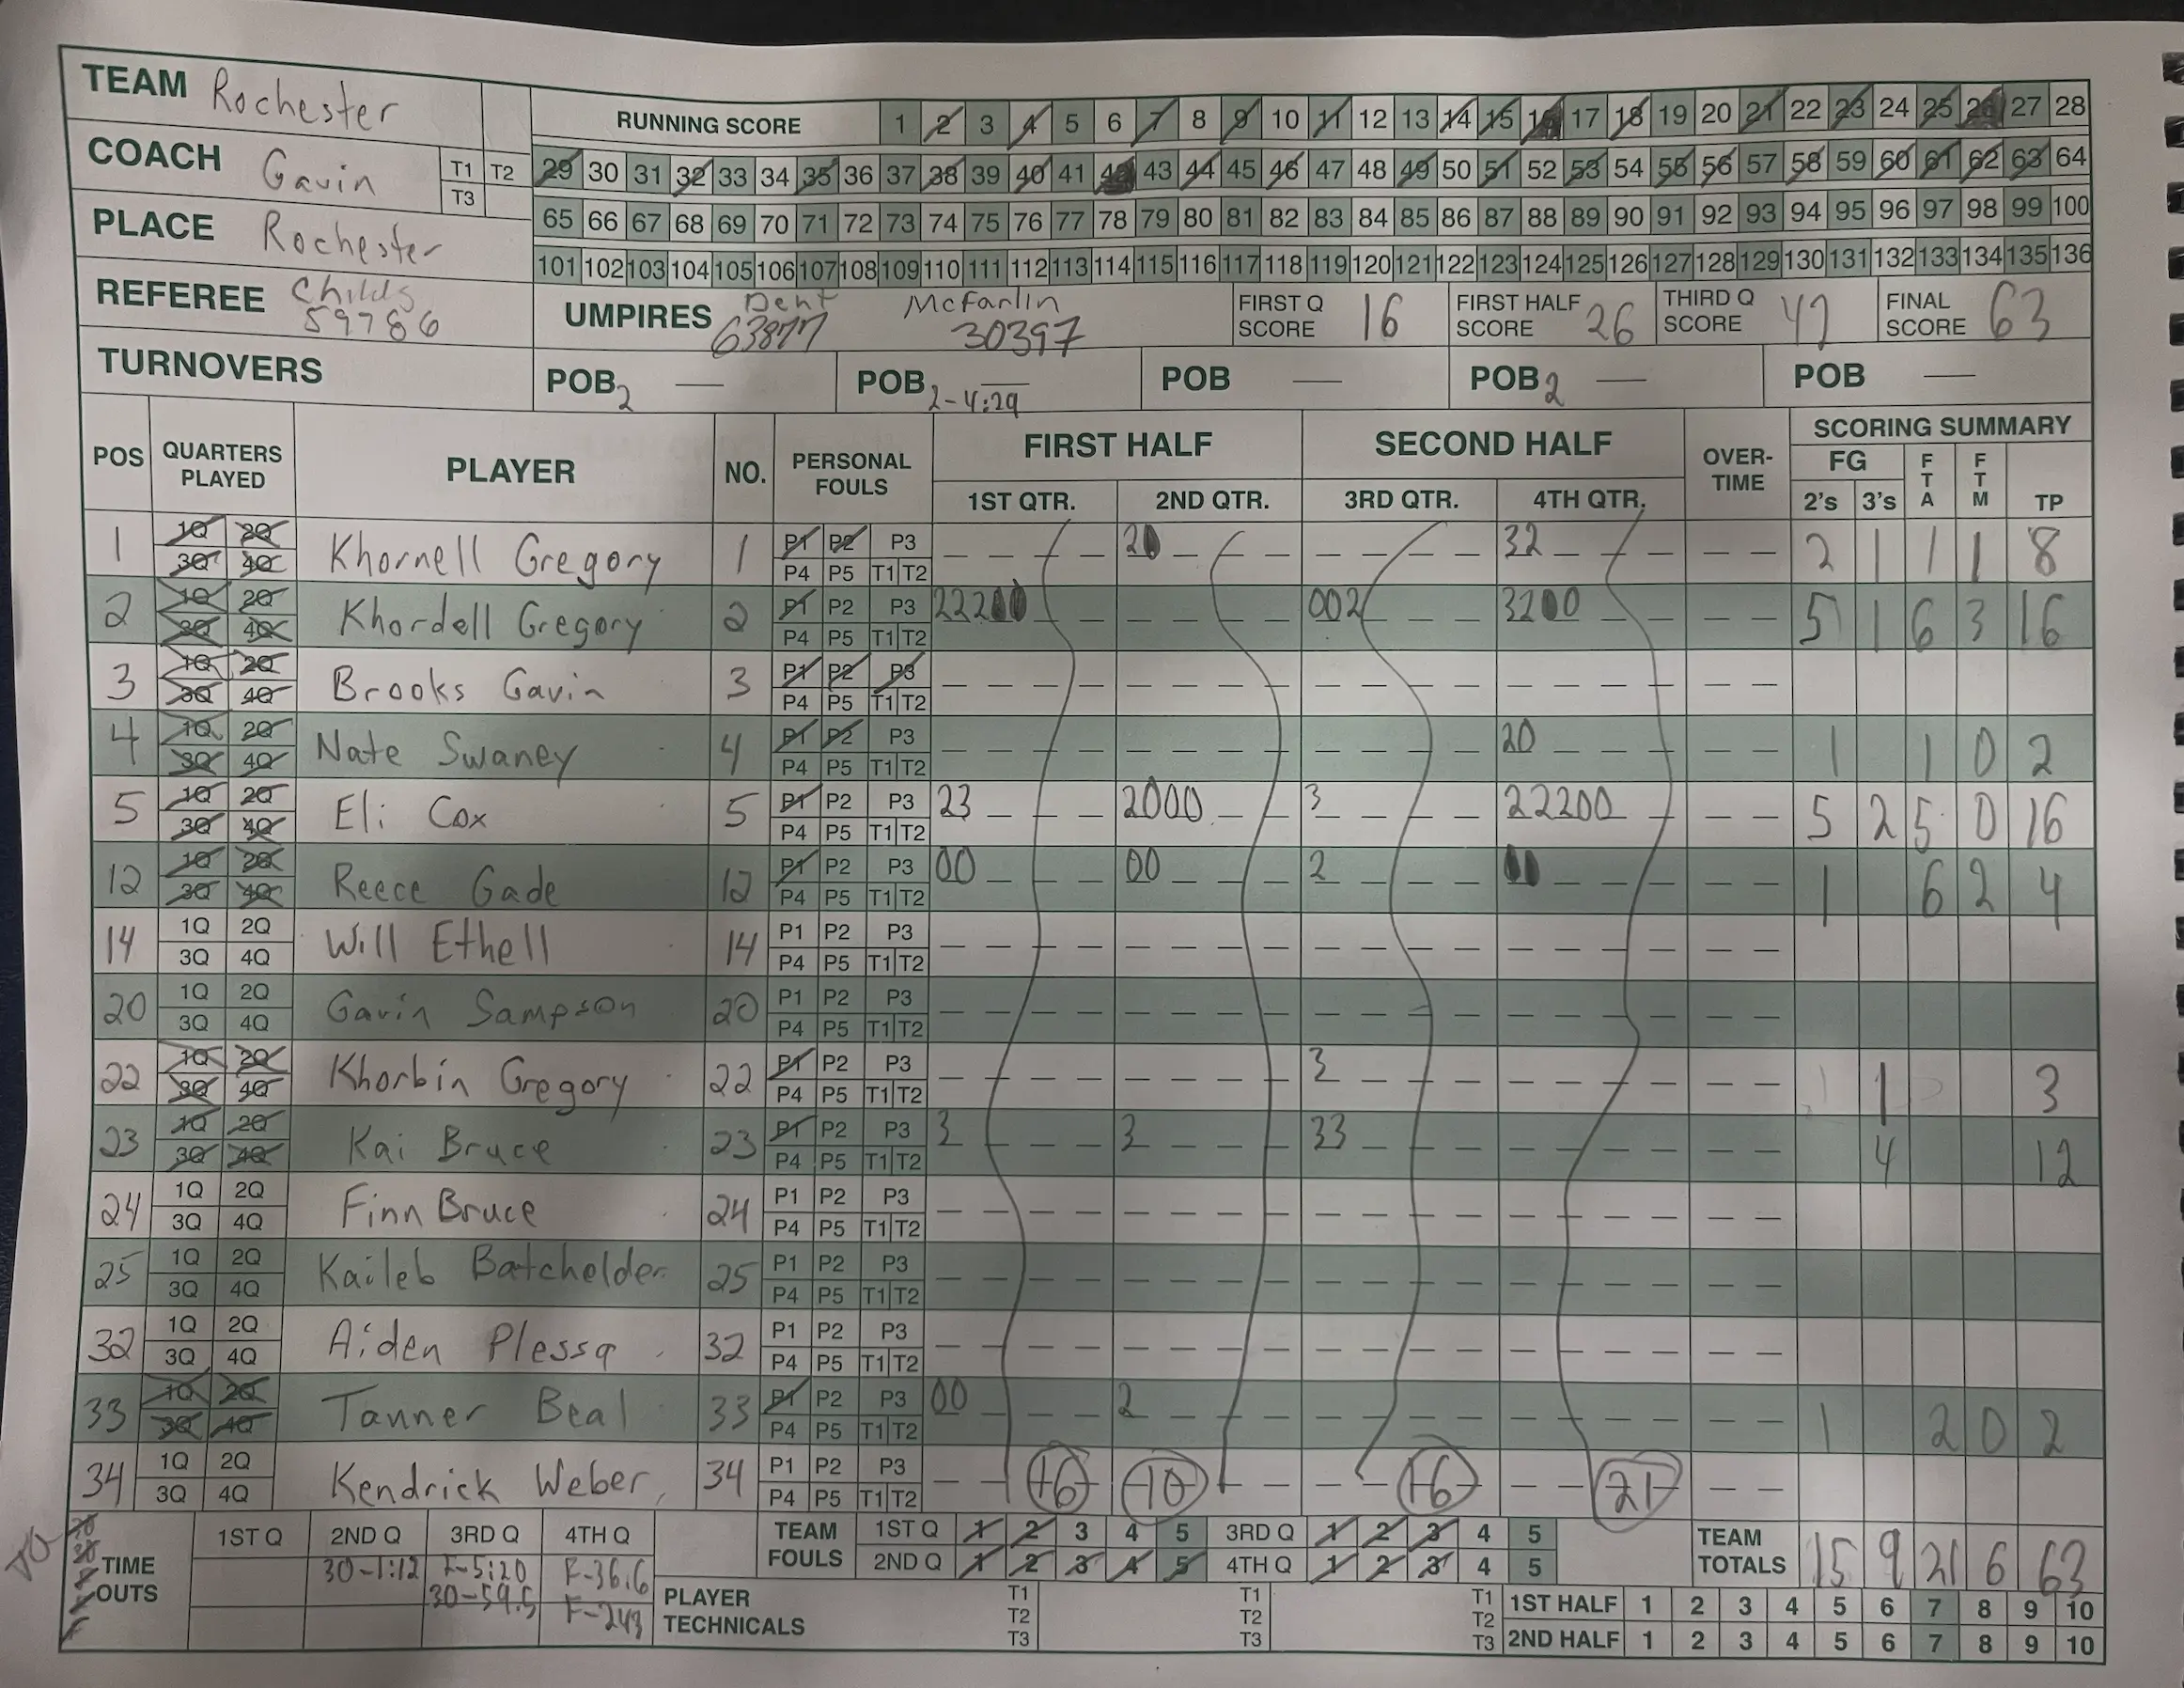 TEAM Rochester
RUNNING SCORE 1 2 3 4 5 6 7 8 9 10 11 12 13 14 15 16 17 18 19 20 21 22 23 24 25 26 27 28
COACH Gavin T1 T2 T3
29 30 31 32 33 34 35 36 37 38 39 40 41 42 43 44 45 46 47 48 49 50 51 52 53 54 55 56 57 58 59 60 61 62 63 64
PLACE Rochester
65 66 67 68 69 70 71 72 73 74 75 76 77 78 79 80 81 82 83 84 85 86 87 88 89 90 91 92 93 94 95 96 97 98 99 100
101 102 103 104 105 106 107 108 109 110 111 112 113 114 115 116 117 118 119 120 121 122 123 124 125 126 127 128 129 130 131 132 133 134 135 136
REFEREE Childs 59786
UMPIRES Dent 63877 McFarlin 30397
FIRST Q SCORE 16 FIRST HALF SCORE 26 THIRD Q SCORE 42 FINAL SCORE 63
TURNOVERS POB2 — POB2-4:29 — POB — POB2 — POB —
POS QUARTERS PLAYED PLAYER NO. PERSONAL FOULS FIRST HALF SECOND HALF OVER-TIME SCORING SUMMARY
1ST QTR. 2ND QTR. 3RD QTR. 4TH QTR. FG 2's 3's FTA FTM TP
1 1Q 2Q 3Q 4Q Khornell Gregory 1 P1 P2 P3 P4 P5 T1 T2 20 32 2 1 1 1 8
2 1Q 2Q 3Q 4Q Khordell Gregory 2 P1 P2 P3 P4 P5 T1 T2 22200 002 3200 5 1 6 3 16
3 1Q 2Q 3Q 4Q Brooks Gavin 3 P1 P2 P3 P4 P5 T1 T2
4 1Q 2Q 3Q 4Q Nate Swaney 4 P1 P2 P3 P4 P5 T1 T2 20 1 1 0 2
5 1Q 2Q 3Q 4Q Eli Cox 5 P1 P2 P3 P4 P5 T1 T2 23 2000 3 22200 5 2 5 0 16
12 1Q 2Q 3Q 4Q Reece Gade 12 P1 P2 P3 P4 P5 T1 T2 00 00 2 00 1 6 2 4
14 1Q 2Q 3Q 4Q Will Ethell 14 P1 P2 P3 P4 P5 T1 T2
20 1Q 2Q 3Q 4Q Gavin Sampson 20 P1 P2 P3 P4 P5 T1 T2
22 1Q 2Q 3Q 4Q Khorbin Gregory 22 P1 P2 P3 P4 P5 T1 T2 3 1 3
23 1Q 2Q 3Q 4Q Kai Bruce 23 P1 P2 P3 P4 P5 T1 T2 3 3 33 4 12
24 1Q 2Q 3Q 4Q Finn Bruce 24 P1 P2 P3 P4 P5 T1 T2
25 1Q 2Q 3Q 4Q Kaileb Batchelder 25 P1 P2 P3 P4 P5 T1 T2
32 1Q 2Q 3Q 4Q Aiden Plessa 32 P1 P2 P3 P4 P5 T1 T2
33 1Q 2Q 3Q 4Q Tanner Beal 33 P1 P2 P3 P4 P5 T1 T2 00 2 1 2 0 2
34 1Q 2Q 3Q 4Q Kendrick Weber 34 P1 P2 P3 P4 P5 T1 T2 16 10 16 21
TIME OUTS 1ST Q 2ND Q 3RD Q 4TH Q
30-1:12 F-5:20 F-36.6
30-59.5 F-243
TEAM FOULS 1ST Q 1 2 3 4 5 3RD Q 1 2 3 4 5
2ND Q 1 2 3 4 5 4TH Q 1 2 3 4 5
TEAM TOTALS 15 9 21 6 63
PLAYER TECHNICALS T1 T2 T3 T1 T2 T3 T1 T2 T3
1ST HALF 1 2 3 4 5 6 7 8 9 10
2ND HALF 1 2 3 4 5 6 7 8 9 10